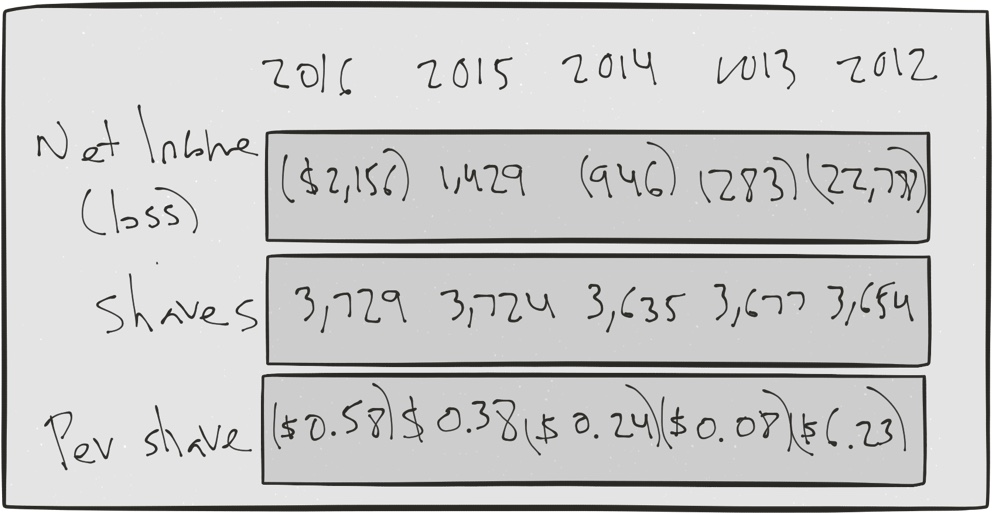 2016 2015 2014 2013 2012
Net Income ($2,156) 1,429 (946) (283) (22,787)
(loss)
Shares 3,729 3,724 3,635 3,677 3,654
Per share ($0.58) $0.38 ($0.24) ($0.08) ($6.23)